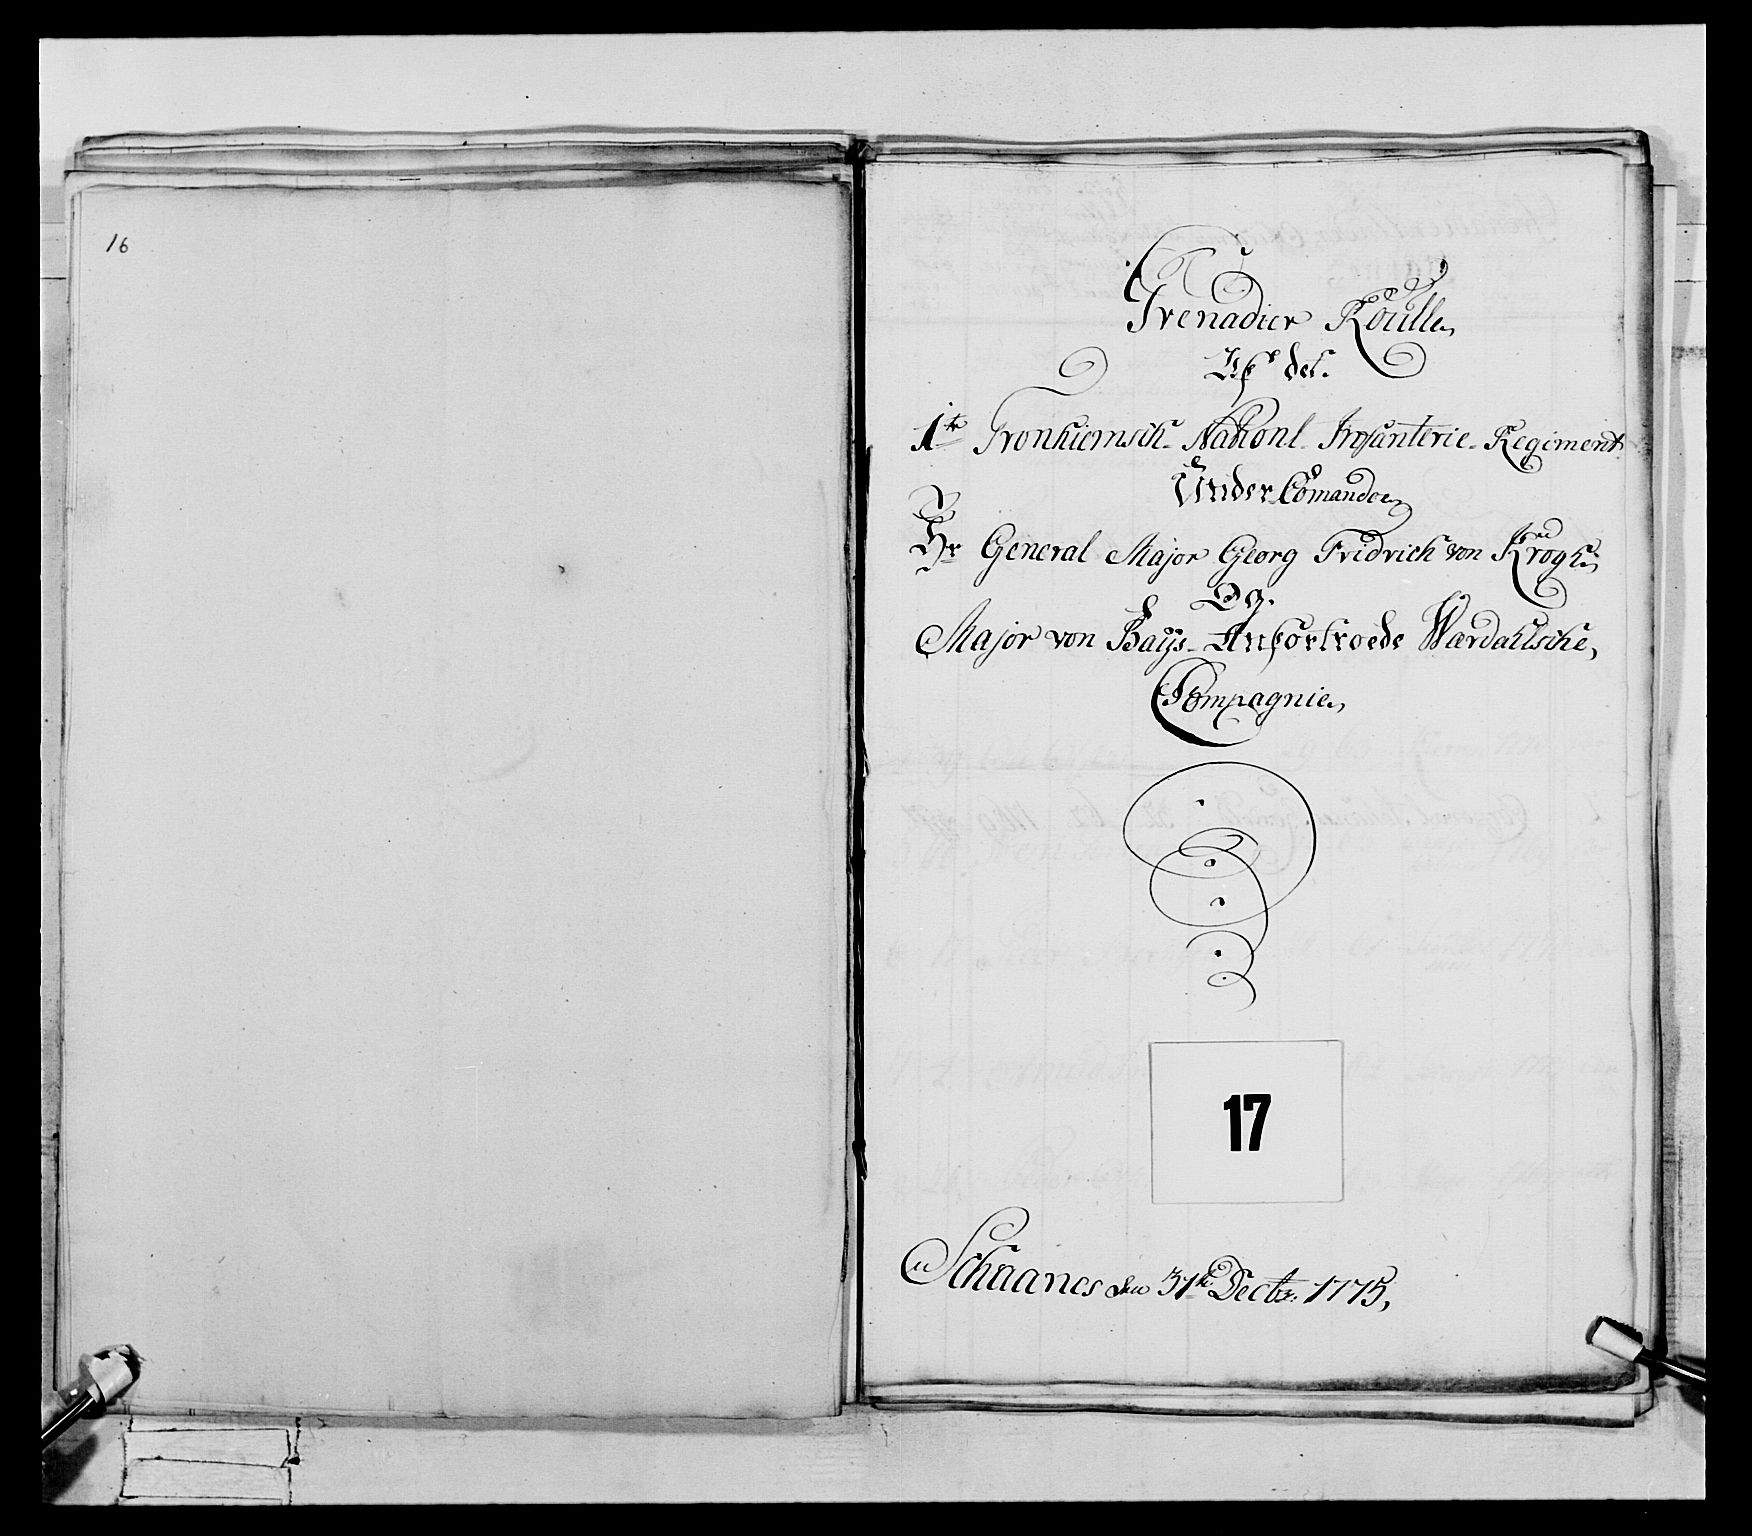 16
Grenadier Roulle,
Af det.
1te Tronhiemsch. Nationl. Infanterie. Regiment
Under Comando
Hr General Major Georg Fridrich von Krogh
Og.
Major von Bays. Anfortroede Wærdahlsche,
Compagnie,
17
Schaanes den 31te Dectr: 1775,